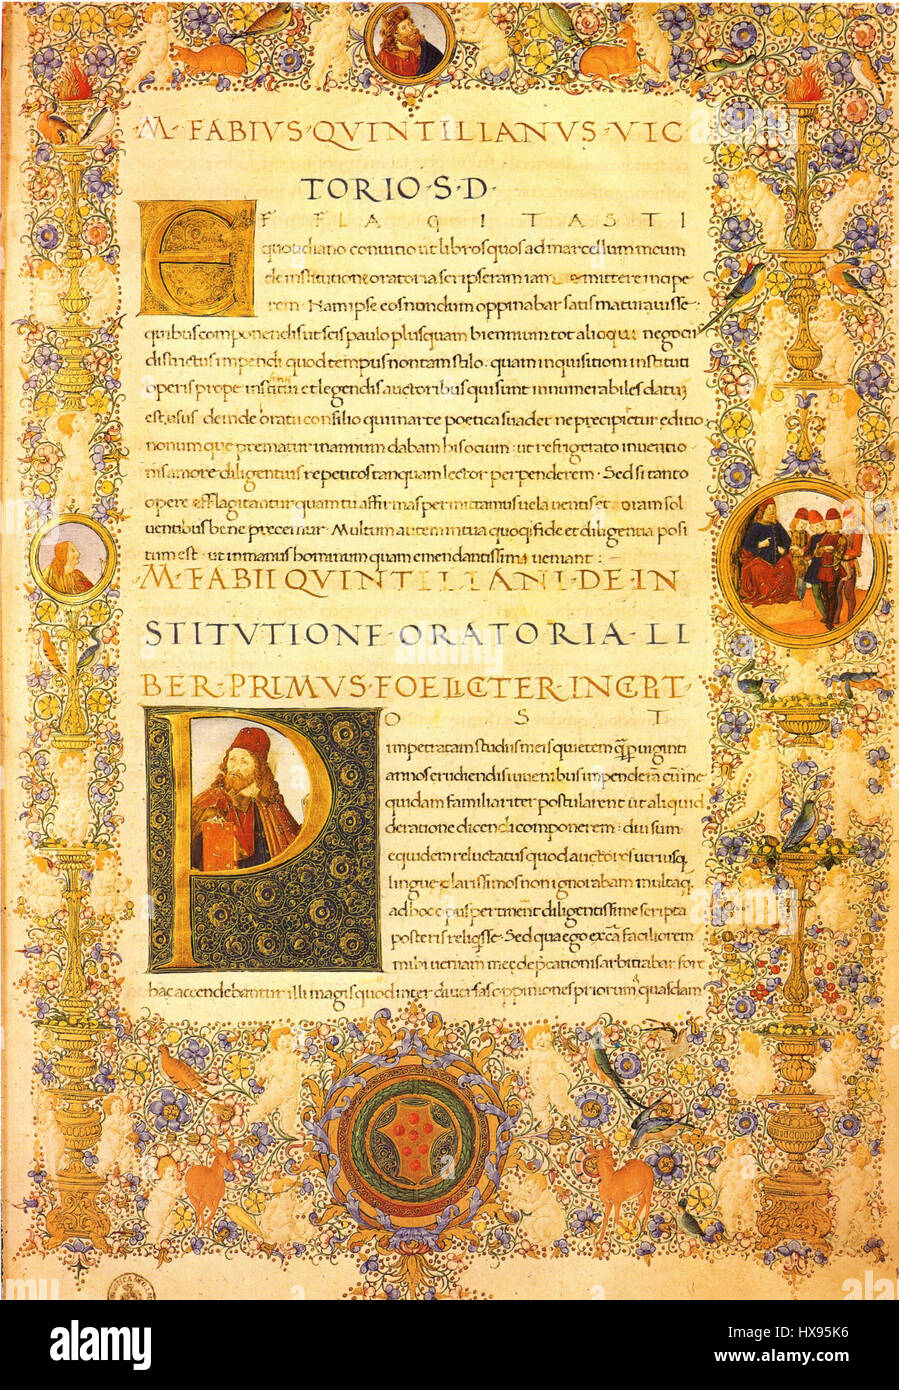 M · FABIVS · QVINTILIANVS · VIC
TORIO · S · D ·
EFFLAGITASTI
quotidiano conuitio ut libros quos ad marcellum meum
de institutione oratoria scripseram iam emittere incipe
rem · Nam ipse eos nondum oppinabar satis maturauisse
quibus componendis ut scis paulo plusquam biennium tot alioqui negociis
districtus impendi quod tempus non tam stilo · quam inquisitioni instituti
operis prope et legendis auctoribus qui sunt innumerabiles datum
est usus deinde oratii consilio qui in arte poetica suadet ne precipitetur editio
nonumque prematur in annum dabam his ocium : ut refrigerato inuentio
nis amore diligentius repetitos tanquam lector perpenderem · Sed si tanto
opere efflagitantur quam tu affirmas permittamus uela uentis et oram sol
uentibus bene precemur · Multum autem in tua quoque fide et diligentia posi
tum est · ut in manus hominum quam emendatissimi ueniant :
M · FABII QVINTILIANI · DE IN
STITVTIONE · ORATORIA · LI
BER · PRIMVS · FOELICITER INCEPIT ·
POST
impetratam studiis meis quietem que per uiginti
annos erudiendis iuuenibus impenderam cum me
quidam familiariter postularent ut aliquid
de ratione dicendi componerem : diu sum
equidem reluctatus quod auctores utriusque
lingue clarissimos non ignorabam multaque
ad hoc opus pertinent diligentissime scripta
posteris reliquisse · Sed qua ego ex causa faciliorem
mihi ueniam arbitrabar fore
hac accendebantur illi magis quod inter diuersas oppiniones priorum quasdam
alamy
Image ID: HX95K6
www.alamy.com